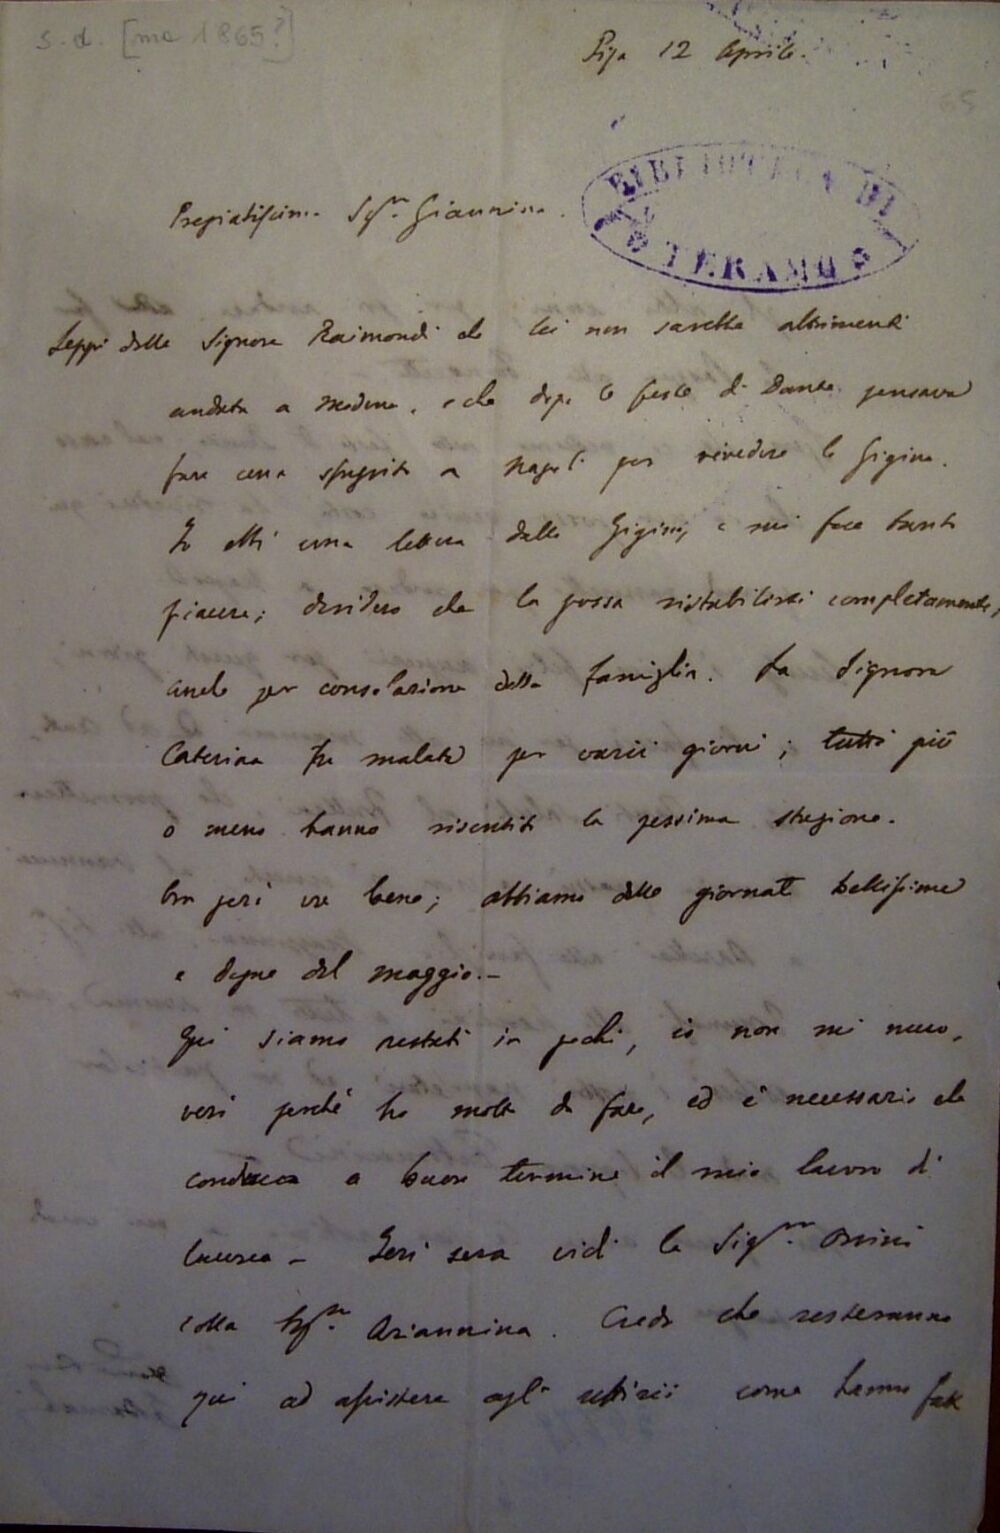 s. d. [ma 1865?]
Pisa 12 Aprile.
BIBLIOTECA DI
TERAMO
Pregiatissima Sigra. Giannina.
Seppi dalla Signora Raimondi che lei non sarebbe altrimenti
andata a Modena, e che dopo le feste di Dante pensava
fare una a Napoli per rivedere la Gigina.
Io ebbi una lettera dalla Gigina, e mi fece tanto
piacere; desidero che la possa ristabilirsi completamente,
anche per consolazione della famiglia. La Signora
Caterina fu malata per varii giorni; tutti più
o meno hanno risentito la pessima stagione.
Ora però va bene; abbiamo delle giornate bellissime
e degne del maggio. —
Qui siamo restati in pochi, io non mi muovo,
perché ho molto da fare, ed è necessario che
conduca a buon termine il mio lavoro di
laurea — Ieri sera vidi la Sigra. Orsini
colla Sigra. Ariannina. Credo che resteranno
qui ad assistere agli uffizii come hanno fatto